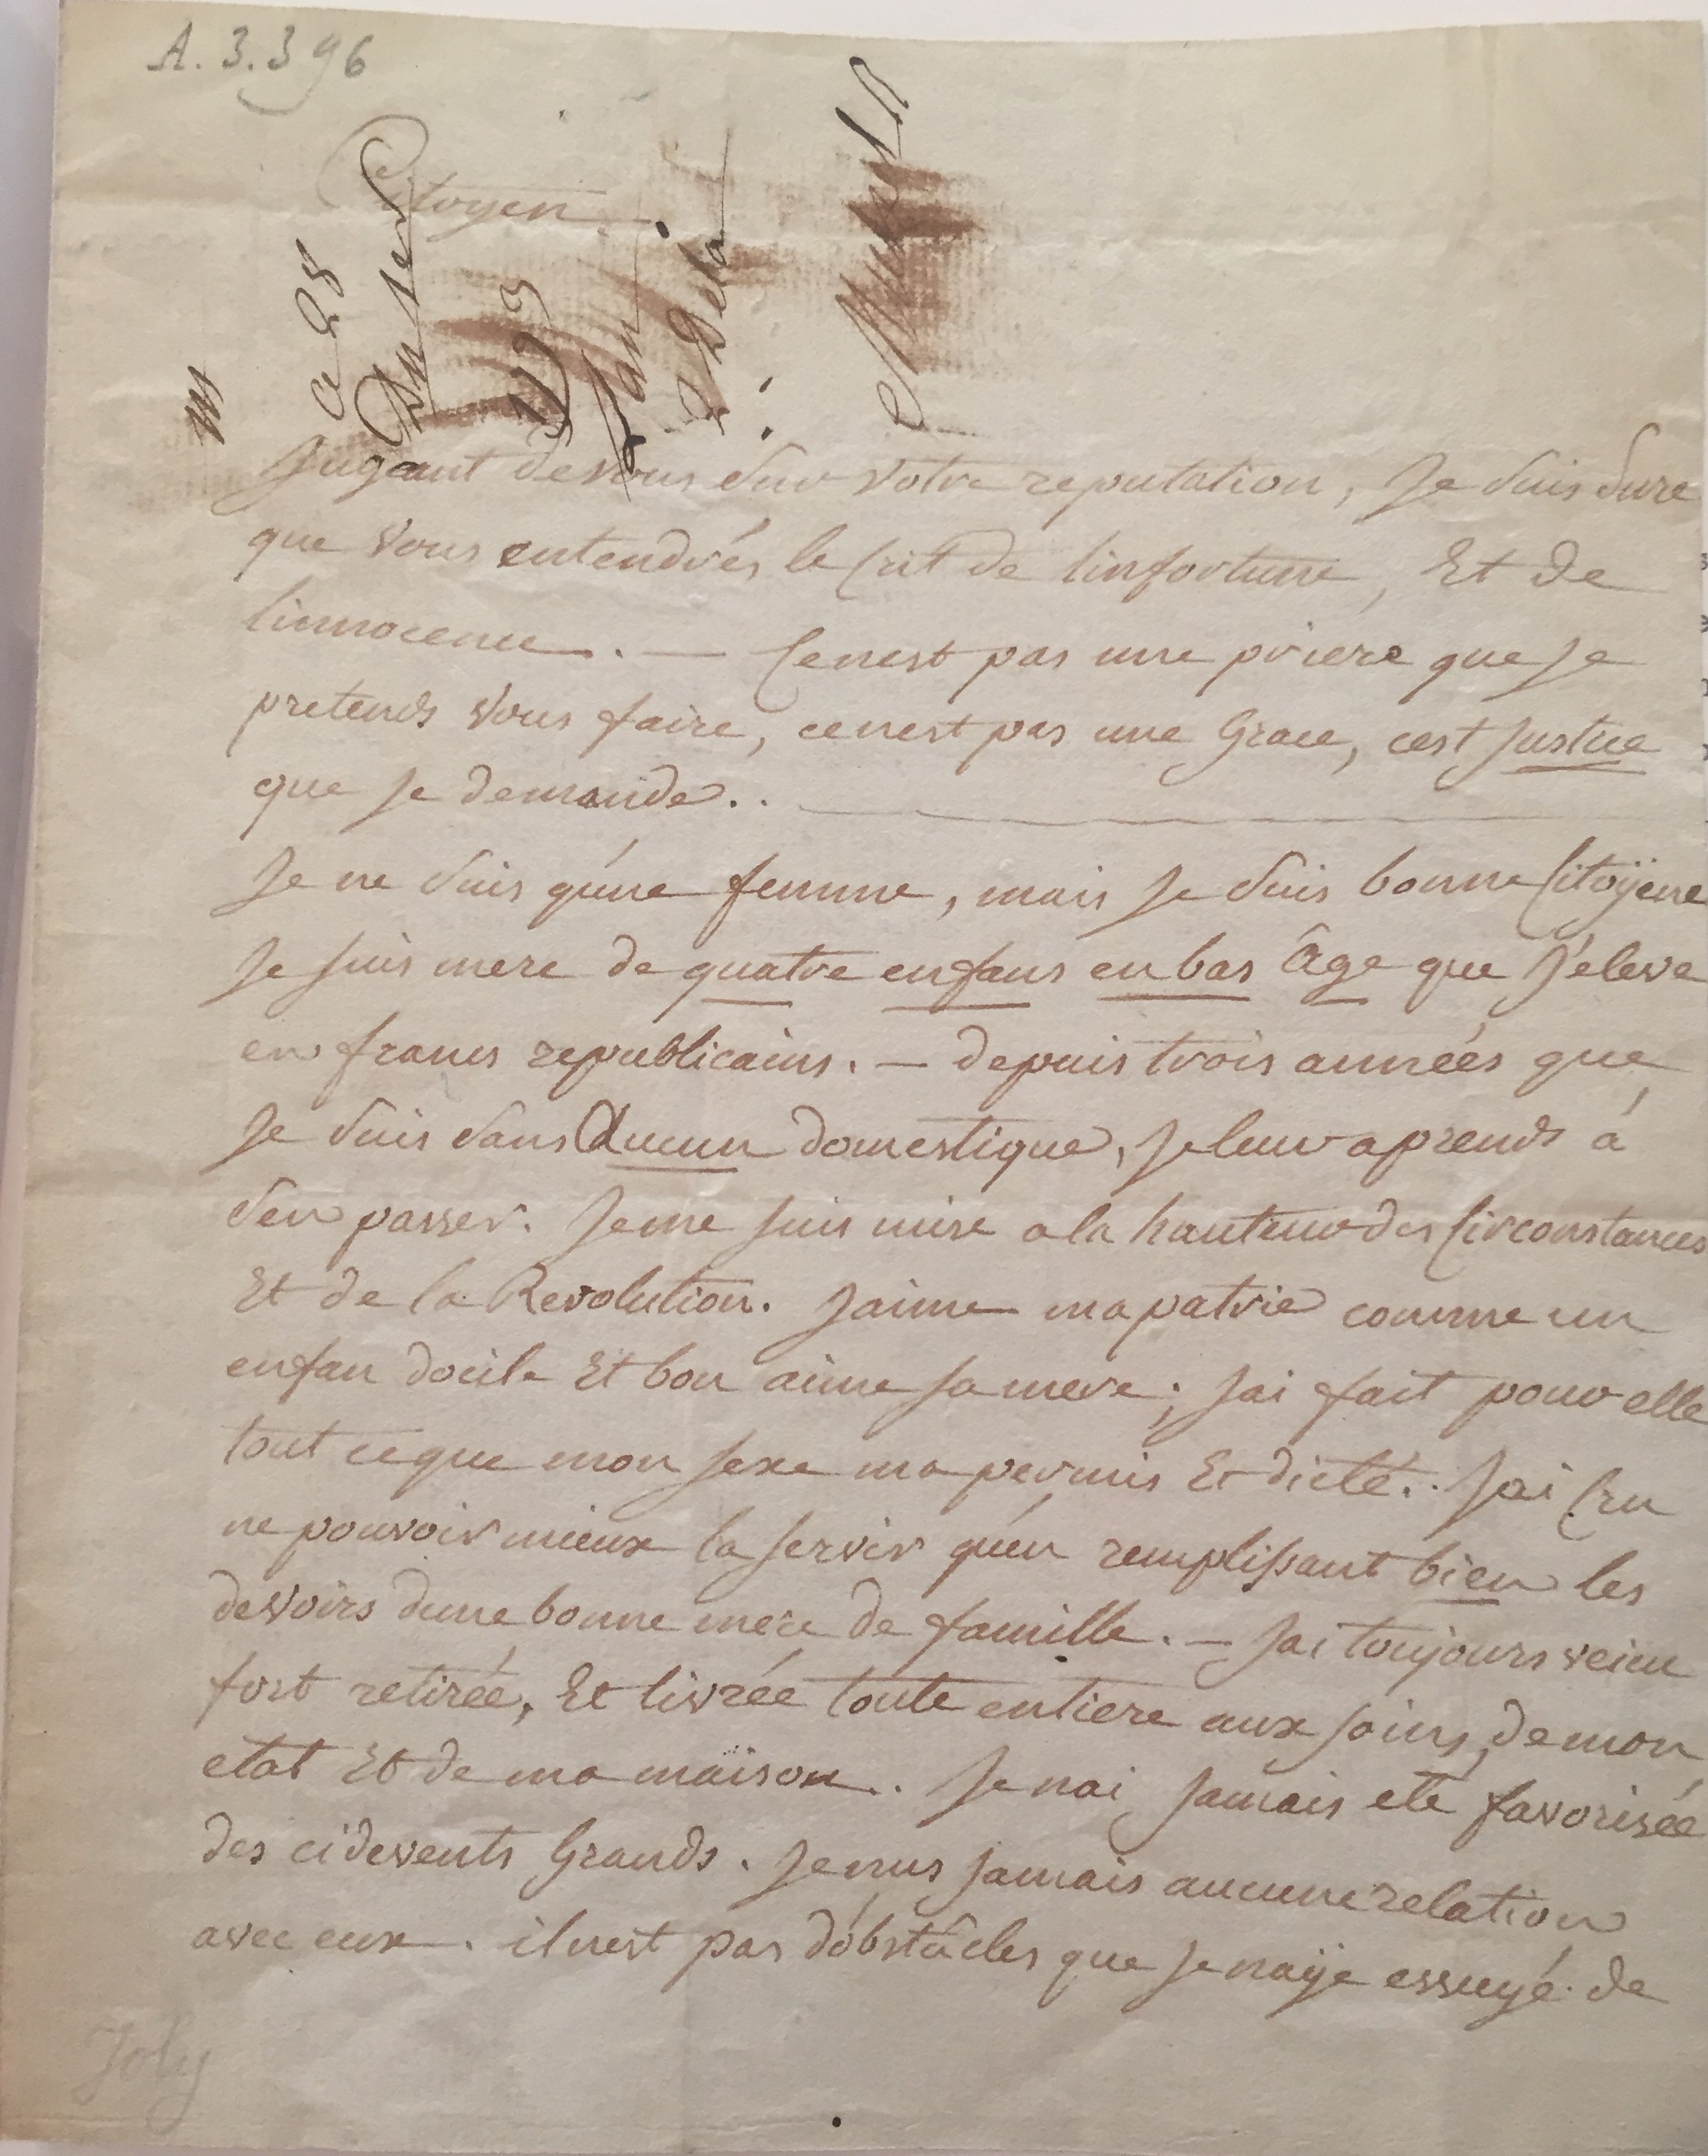 A. 3. 396
Citoyen
a 28
Jugeant de vous sur votre reputation, Je suis sure
que vous entendrés le Crit de linfortune, Et de
linnocence. — Ce nest pas une priere que Je
pretends vous faire, ce nest pas une Grace, cest Justice
que Je demande..
Je ne suis qu'une femme, mais Je suis bonne Citoÿene
Je suis mere de quatre enfans en bas Âge que J'eleve
en francs republicains. — depuis trois années que
Je suis sans Aucun domestique, Je leur aprends à
s'en passer. Je me suis mise a la hauteur des Circonstances
Et de la Revolution. Jaime ma patrie comme un
enfan docile Et bon aime sa mere; Jai fait pour elle
tout ce que mon sexe ma permis Et dicté.. Jai Cru
ne pouvoir mieux la servir qu'en remplissant bien les
devoirs dune bonne mere de famille. — Jai toujours vecu
fort retirée, Et livrée toute entiere aux soins, de mon
etat Et de ma maison.. Je nai Jamais eté favorisée
des cidevents Grands. Je nus Jamais aucune relation
avec eux. il nest pas d'obstâcles que Je naÿe essuyé. de
Joly